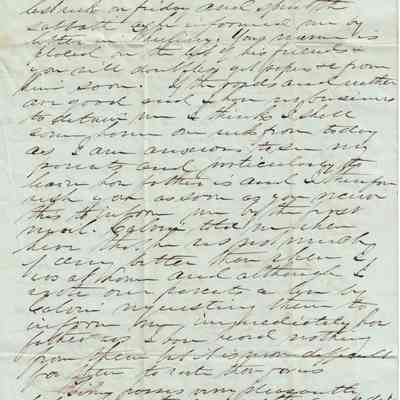 last week on Friday and spent the
Sabbath informed me by
letter in Your name is
placed on the list of his friends &
you will doubtless get papers from
him soon. If the roads and weather
are good and I have no business
to detain me I think I shall
come home one week from today
as I am anxious to see my
parents and particularly to
learn how father is and I therefore
wish you as soon as you receive
this to inform me by the first
mail. Calvin told me when
here that he was not much
if any better than when I
was at home and although I
wrote our parents a line by
Calvin requesting them to
inform me immediately how
father was I have heard nothing
from them yet it is more difficult
for them to write than for us
pleasantly